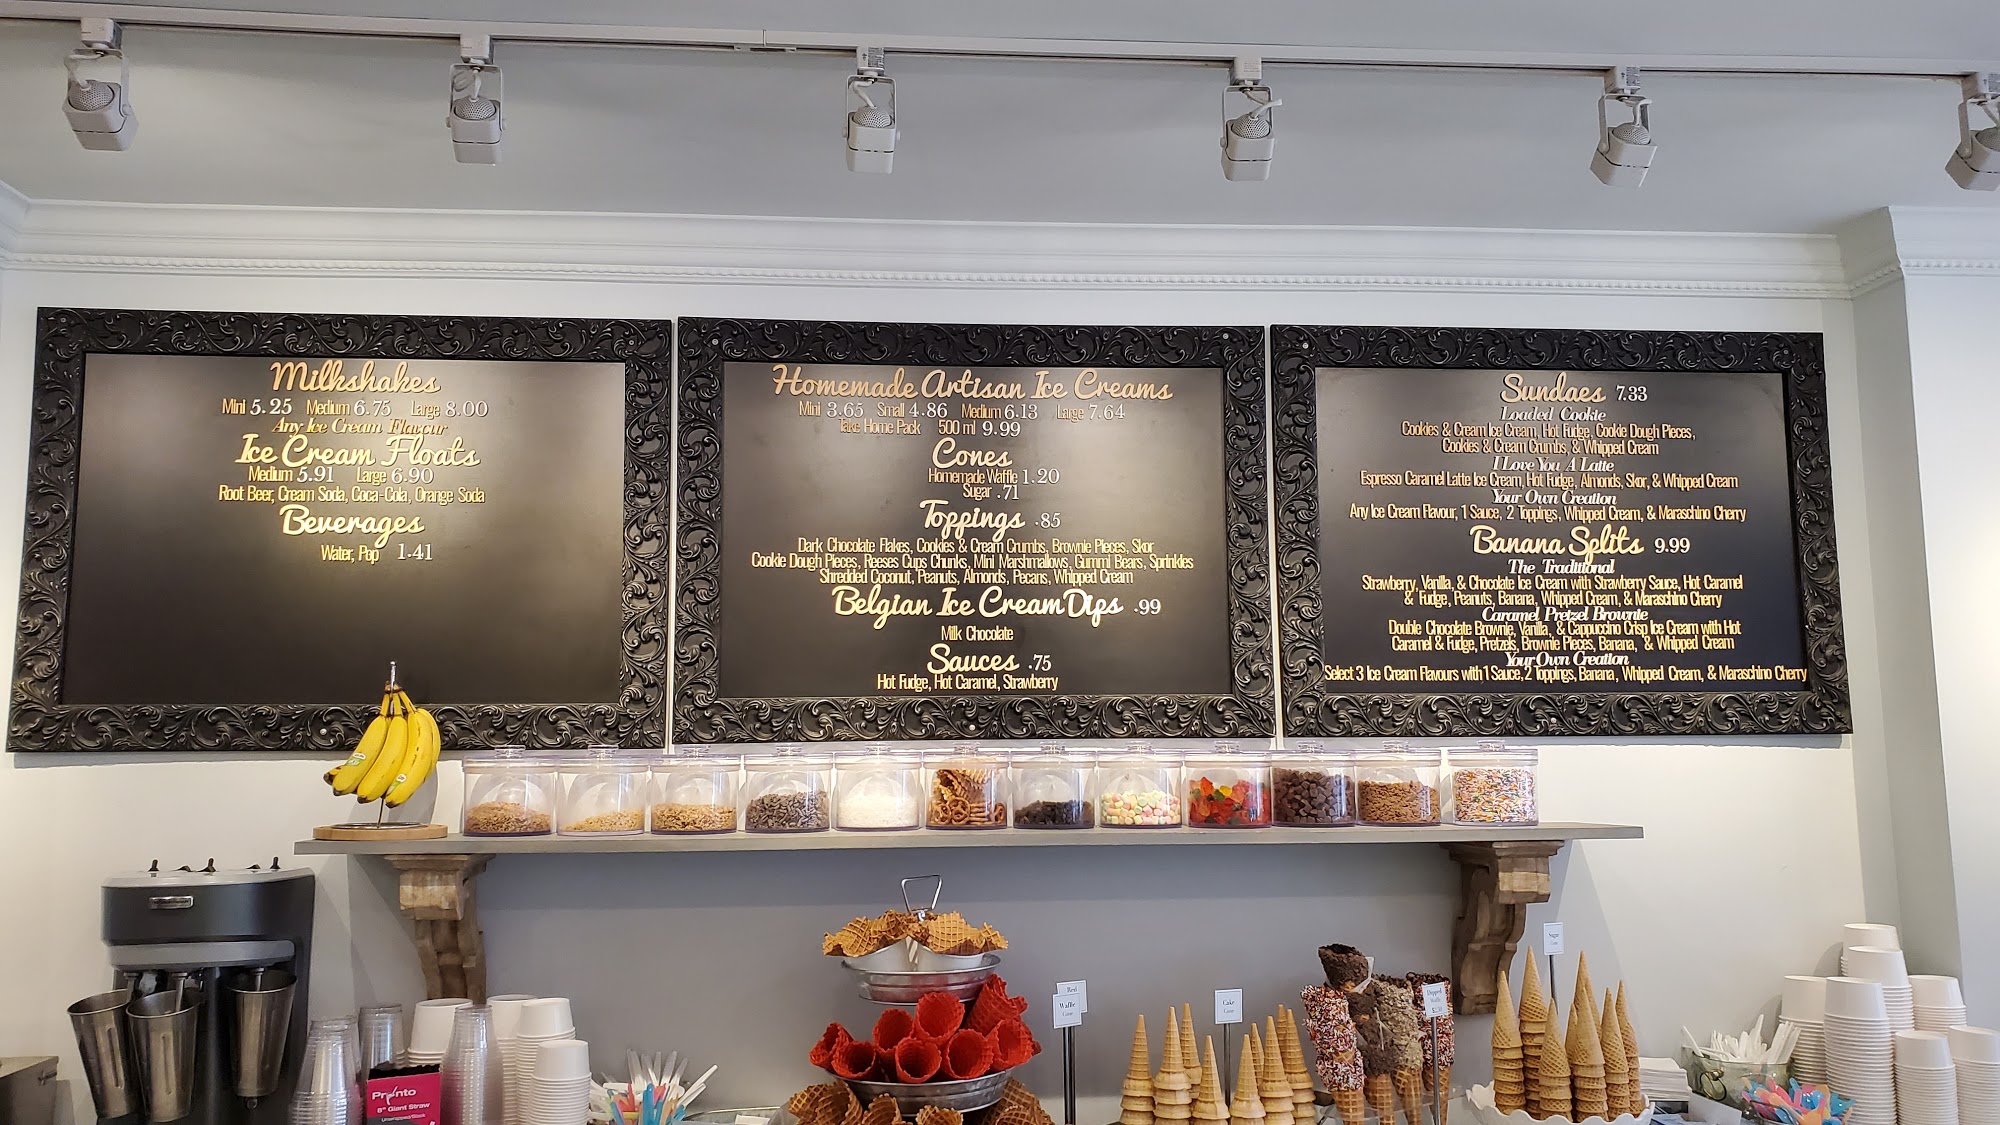 Milkshakes
Mini 5.25 Medium 6.75 Large 8.00
Any Ice Cream Flavour
Ice Cream Floats
Medium 5.91 Large 6.90
Root Beer, Cream Soda, Coca-Cola, Orange Soda
Beverages
Water, Pop 1.41
Homemade Artisan Ice Creams
Mini 3.65 Small 4.86 Medium 6.13 Large 7.64
Take Home Pack 500 ml 9.99
Cones
Homemade Waffle 1.20
Sugar .71
Toppings .85
Dark Chocolate Flakes, Cookies & Cream Crumbs, Brownie Pieces, Skor
Cookie Dough Pieces, Reeses Cups Chunks, Mini Marshmallows, Gummi Bears, Sprinkles
Shredded Coconut, Peanuts, Almonds, Pecans, Whipped Cream
Belgian Ice Cream Dips .99
Milk Chocolate
Sauces .75
Hot Fudge, Hot Caramel, Strawberry
Sundaes 7.33
Loaded Cookie
Cookies & Cream Ice Cream, Hot Fudge, Cookie Dough Pieces,
Cookies & Cream Crumbs, & Whipped Cream
I Love You A Latte
Espresso Caramel Latte Ice Cream, Hot Fudge, Almonds, Skor, & Whipped Cream
Your Own Creation
Any Ice Cream Flavour, 1 Sauce, 2 Toppings, Whipped Cream, & Maraschino Cherry
Banana Splits 9.99
The Traditional
Strawberry, Vanilla, & Chocolate Ice Cream with Strawberry Sauce, Hot Caramel
& Fudge, Peanuts, Banana, Whipped Cream, & Maraschino Cherry
Caramel Pretzel Brownie
Double Chocolate Brownie, Vanilla, & Cappuccino Crisp Ice Cream with Hot
Caramel & Fudge, Pretzels, Brownie Pieces, Banana, & Whipped Cream
Your Own Creation
Select 3 Ice Cream Flavours with 1 Sauce, 2 Toppings, Banana, Whipped Cream, & Maraschino Cherry
Pronto
8" Giant Straw
Red
Waffle
Cone
Cake
Cone
Dipped
Waffle
Sugar
Cone